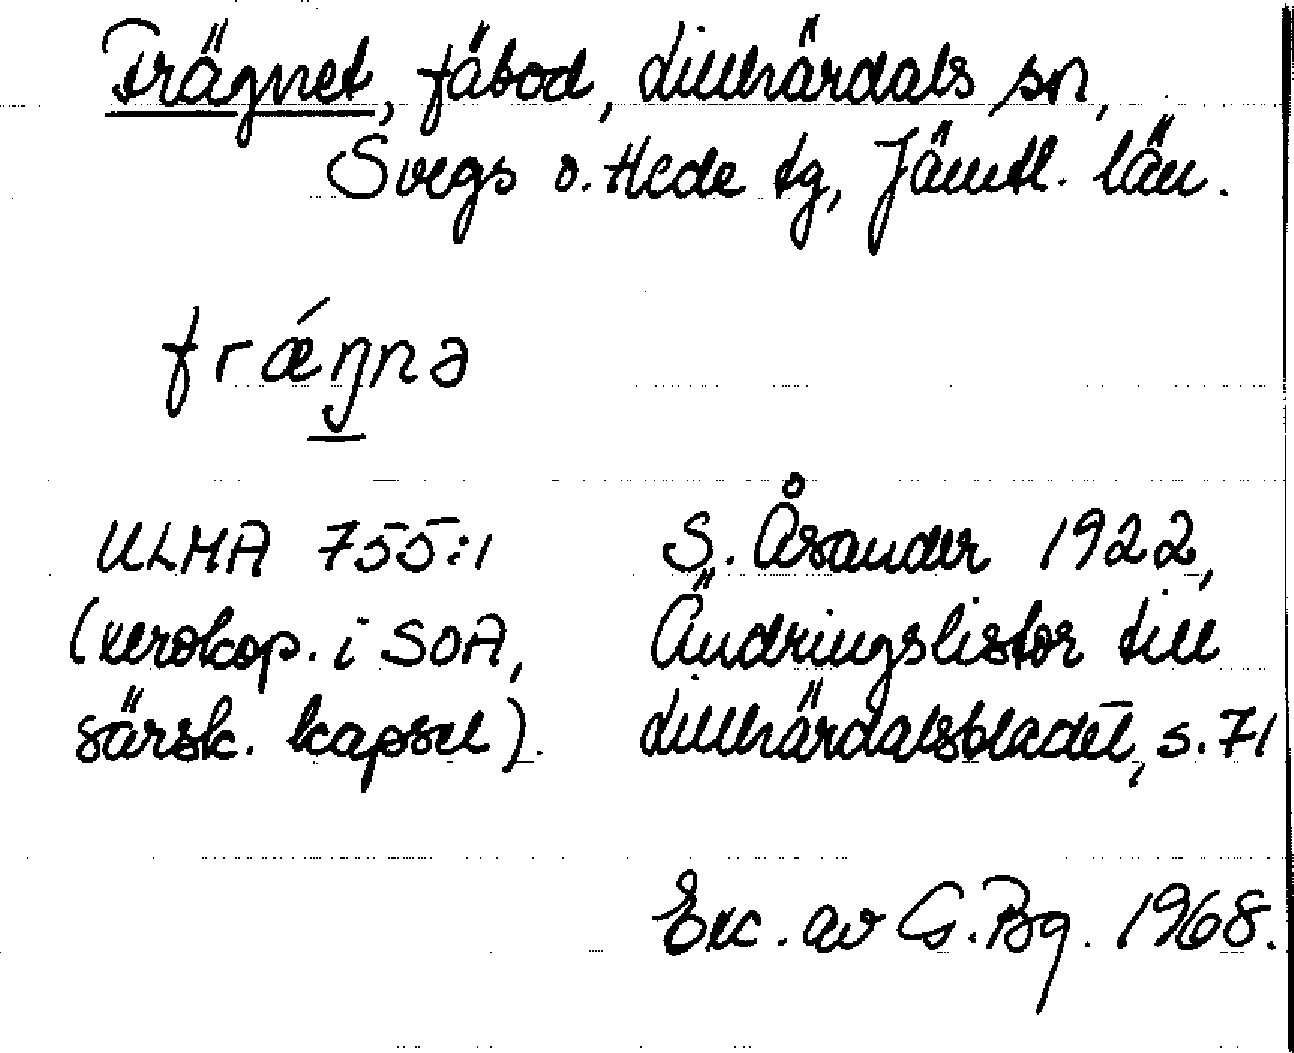 Frägnet, fäbod, Lillhärdals sn,
Svegs o. Hede tg, Jämtl. län.
frǽŋnə
ULMA 755:1
(xerokop. i SOA,
särsk. kapsel).
S. Åsander 1922,
Ändringslistor till
Lillhärdalsbladet, s. 71
Exc. av G. Bg. 1968.